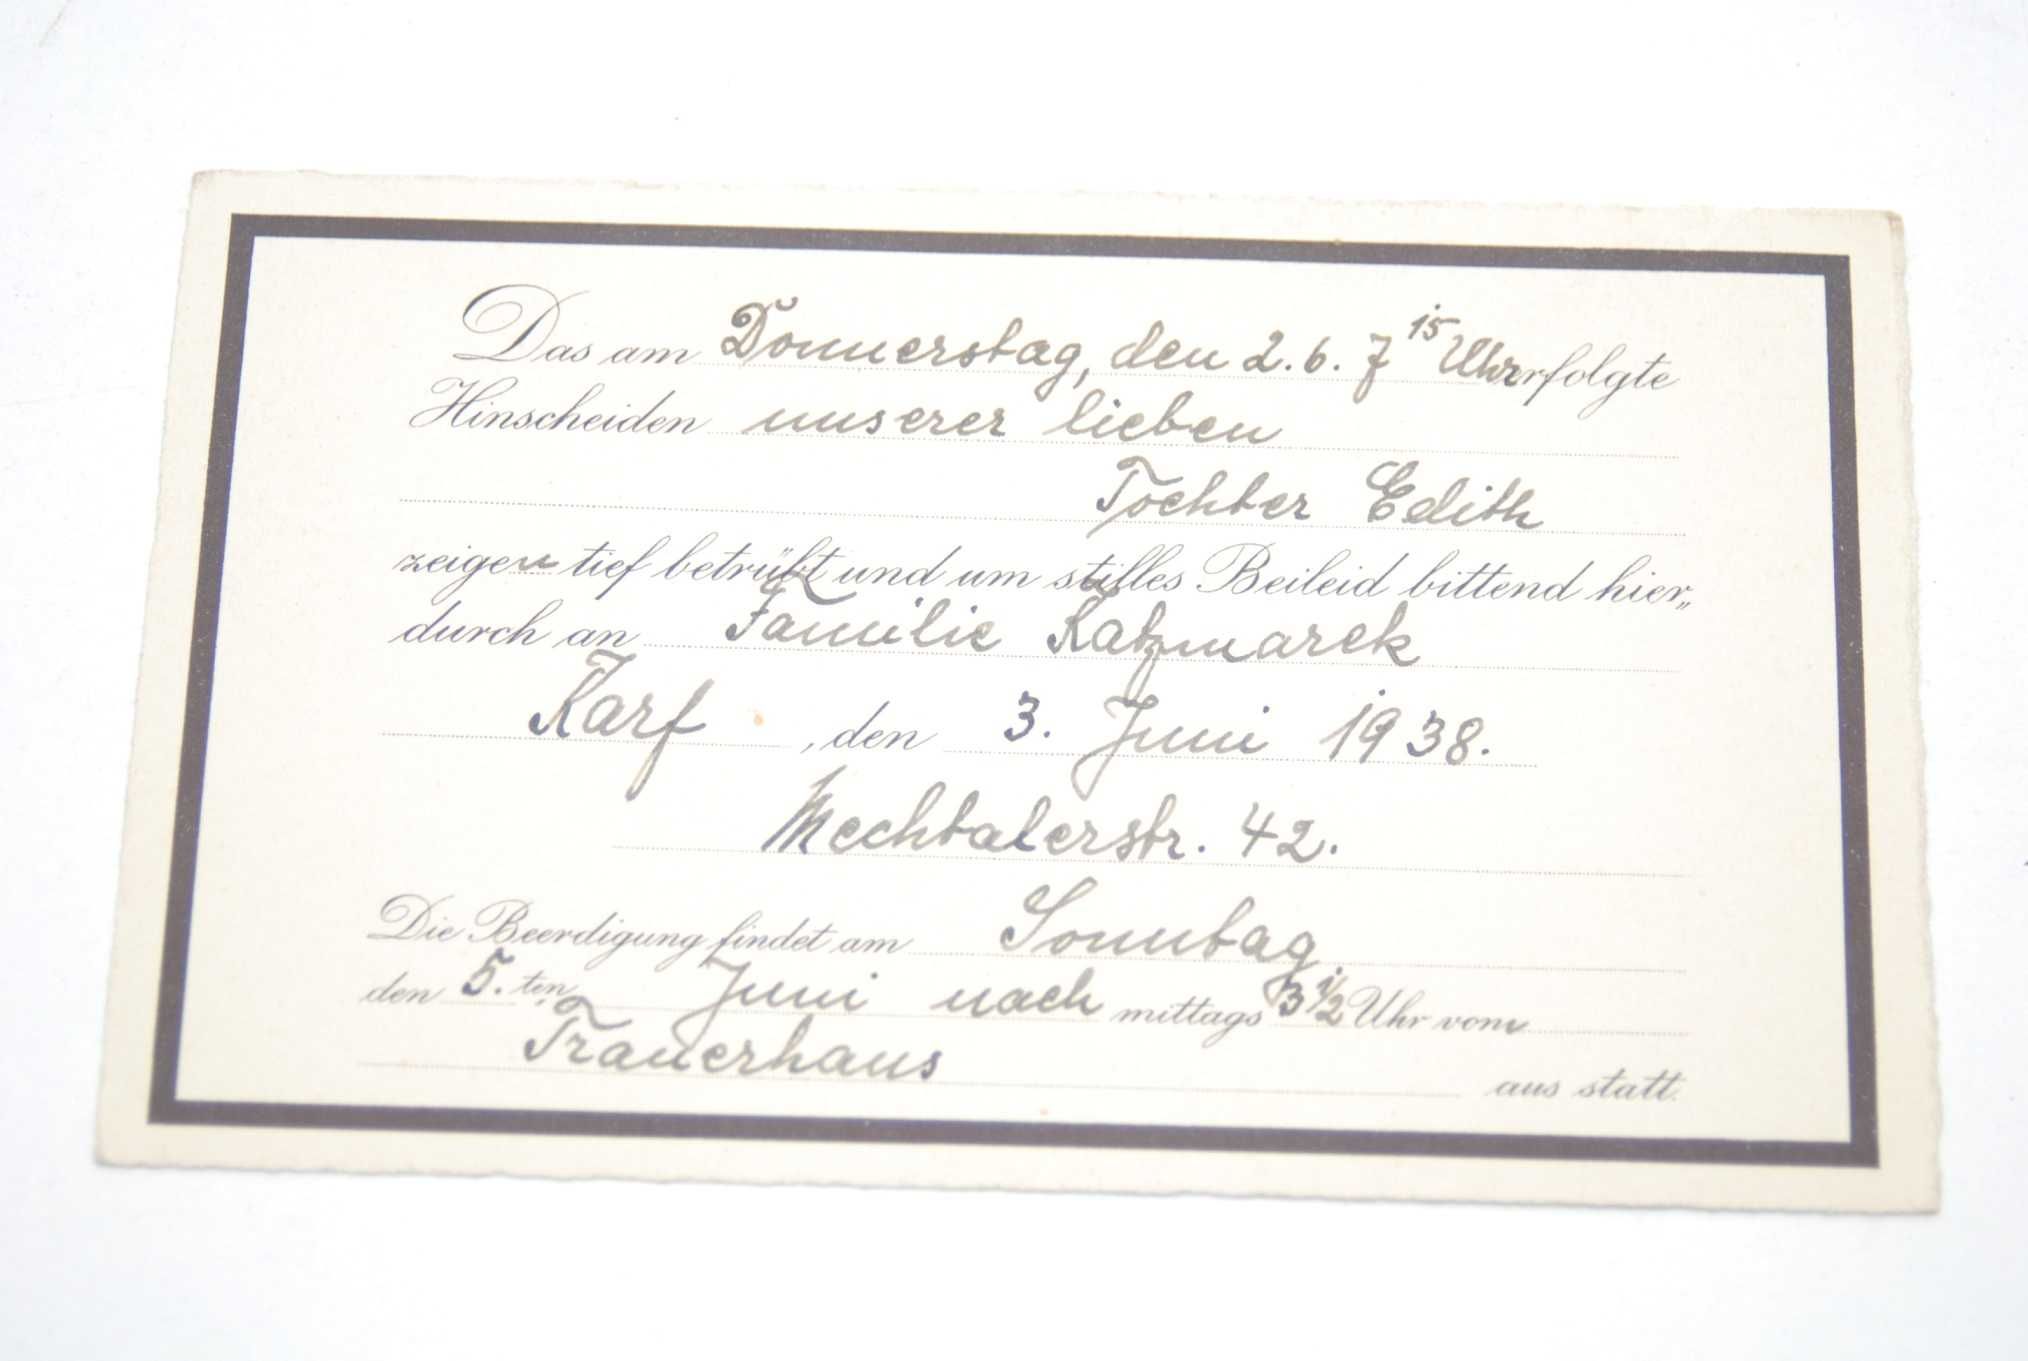 Das am Donnerstag, den 2. 6. 7¹⁵ Uhr erfolgte
Hinscheiden unserer lieben
Tochter Edith
zeigen tief betrübt und um stilles Beileid bittend hier„
durch an Familie Katzmarek
Karf, den 3. Juni 1938.
Mechtalerstr. 42.
Die Beerdigung findet am Sonntag
den 5. ten Juni nach mittags 3 1/2 Uhr vom
Trauerhaus aus statt.